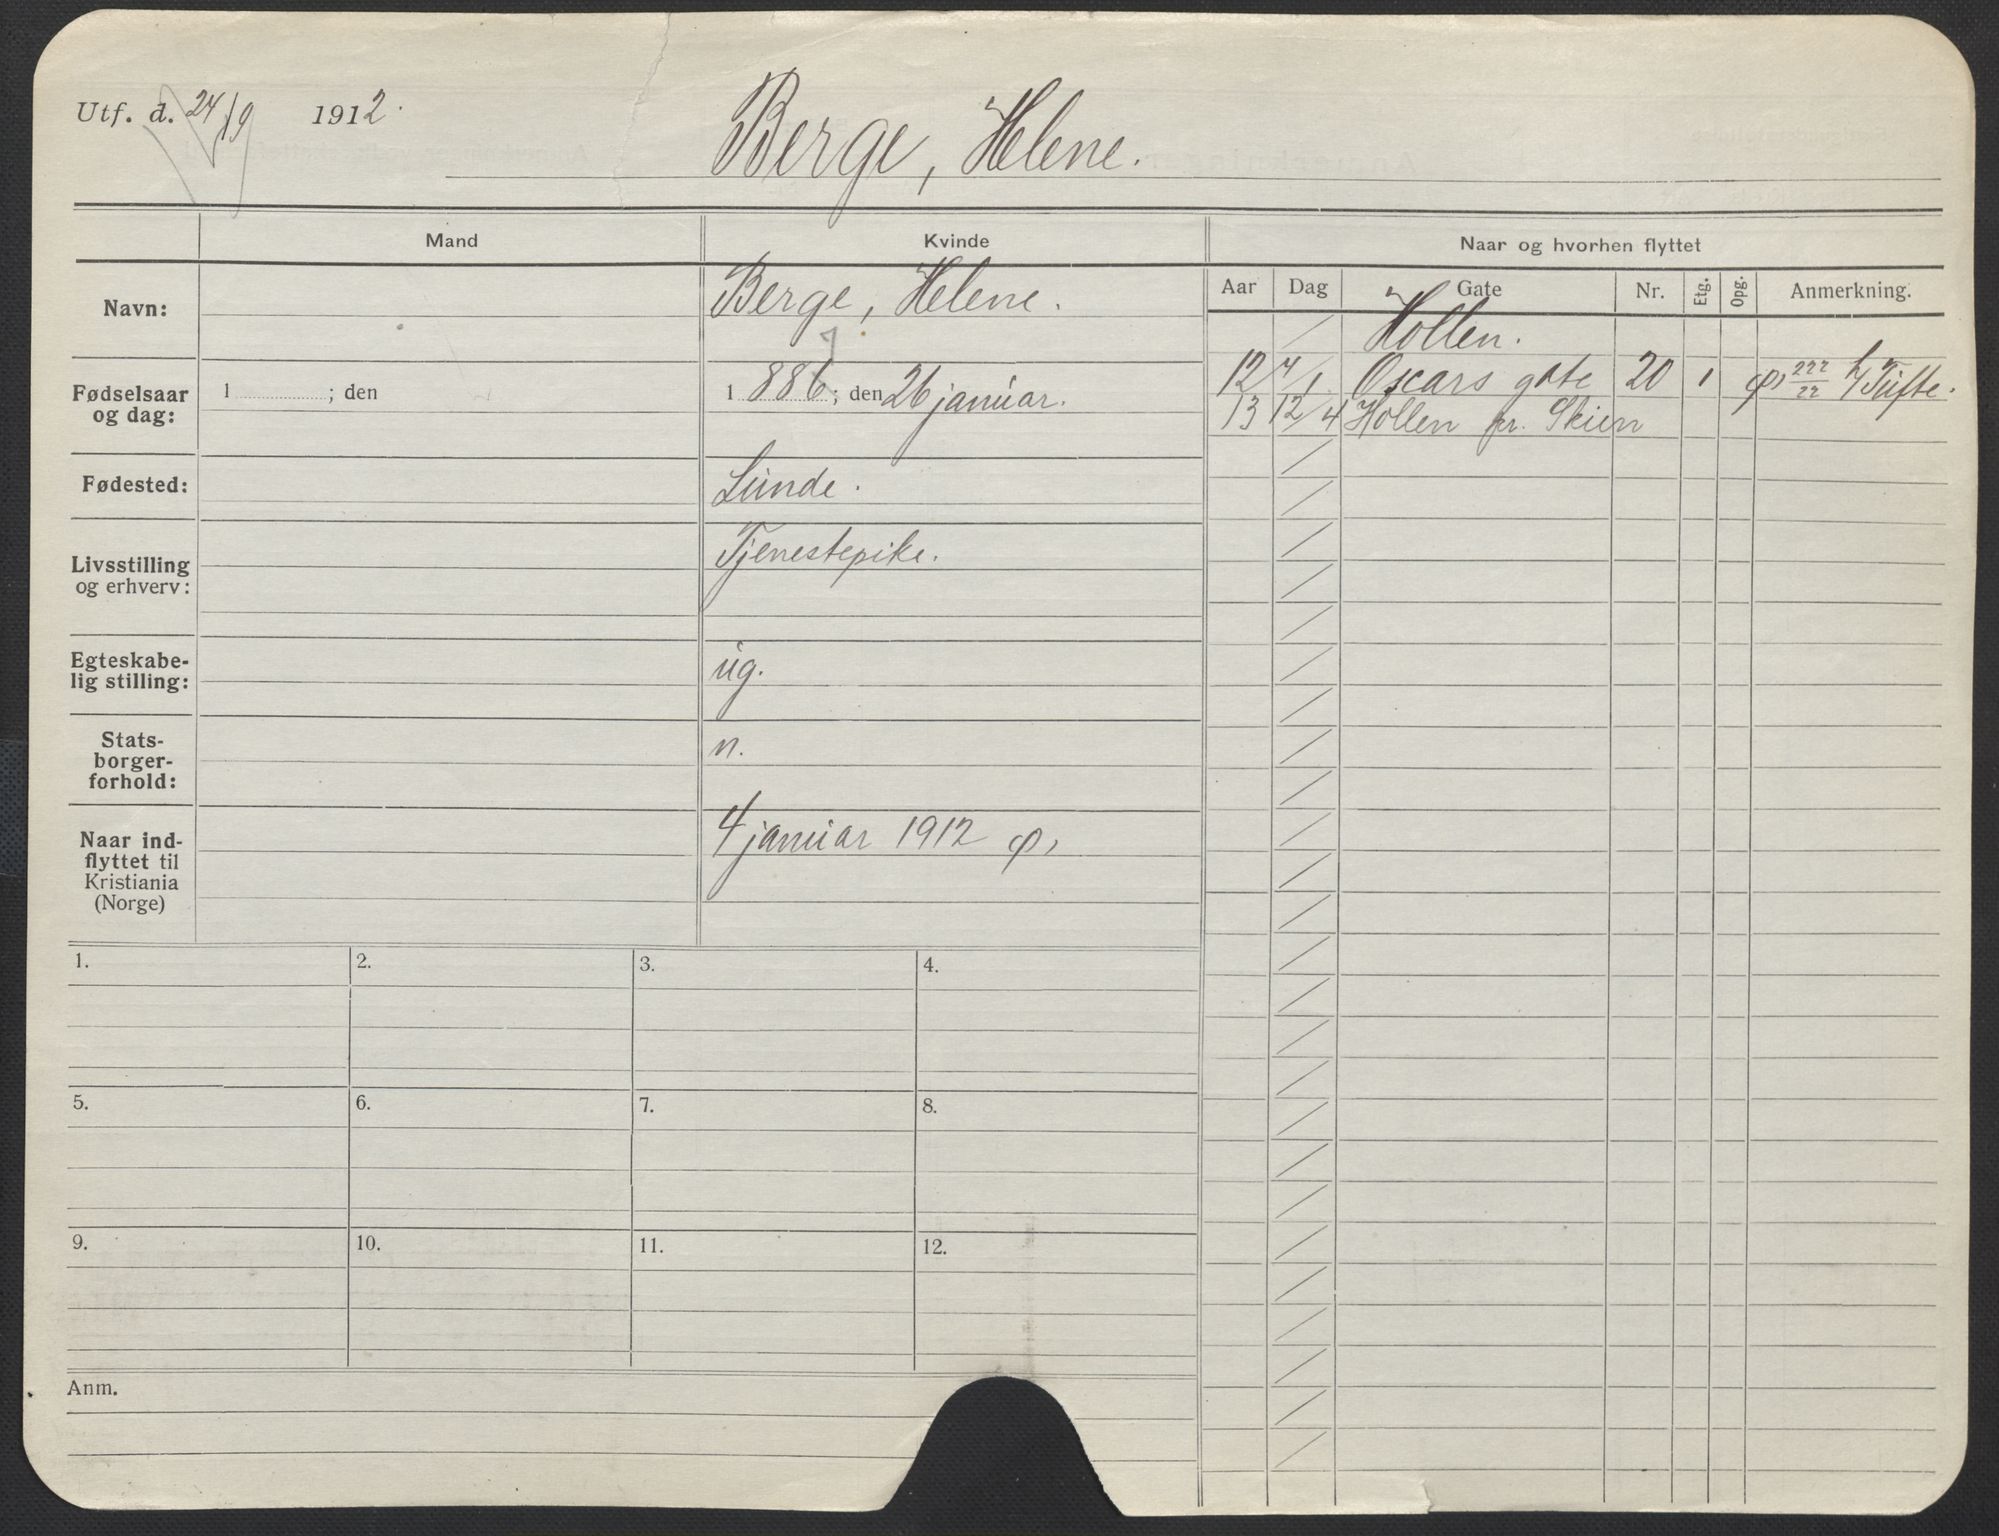 Utf. d. 24/9 1912.
Berge, Helene.
Mand
Kvinde
Naar og hvorhen flyttet
Aar Dag Gate Nr. Etg. Opg. Anmerkning.
Navn:
Berge, Helene.
Fødselsaar
og dag:
1 ; den
1886; den 26 januar.
7
Fødested:
Lunde.
Livsstilling
og erhverv:
Tjenestepike.
Egteskabe-
lig stilling:
ug.
Stats-
borger-
forhold:
n.
Naar ind-
flyttet til
Kristiania
(Norge)
4 januar 1912 φ,
Hollen.
12 4/1 Oscars gate 20 1 φ, 222/22 h/ Tufte.
13 12/4 Hollen pr. Skien
1.
2.
3.
4.
5.
6.
7.
8.
9.
10.
11.
12.
Anm.